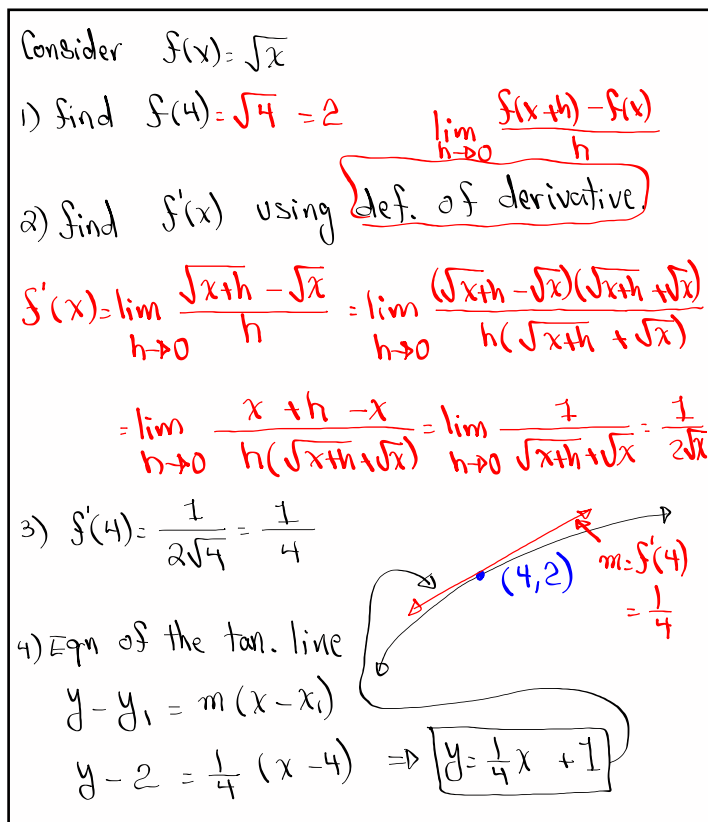 Consider f(x) = √x
1) find f(4) = √4 = 2
lim h→0 (f(x+h) - f(x))/h
2) find f'(x) using def. of derivative.
f'(x) = lim h→0 (√(x+h) - √x)/h = lim h→0 ((√(x+h) - √x)(√(x+h) + √x))/(h(√(x+h) + √x))
= lim h→0 (x + h - x)/(h(√(x+h) + √x)) = lim h→0 1/(√(x+h) + √x) = 1/(2√x)
3) f'(4) = 1/(2√4) = 1/4
(4,2)
m = f'(4)
= 1/4
4) Eqn of the tan. line
y - y₁ = m(x - x₁)
y - 2 = 1/4 (x - 4) ⇒ y = 1/4 x + 1